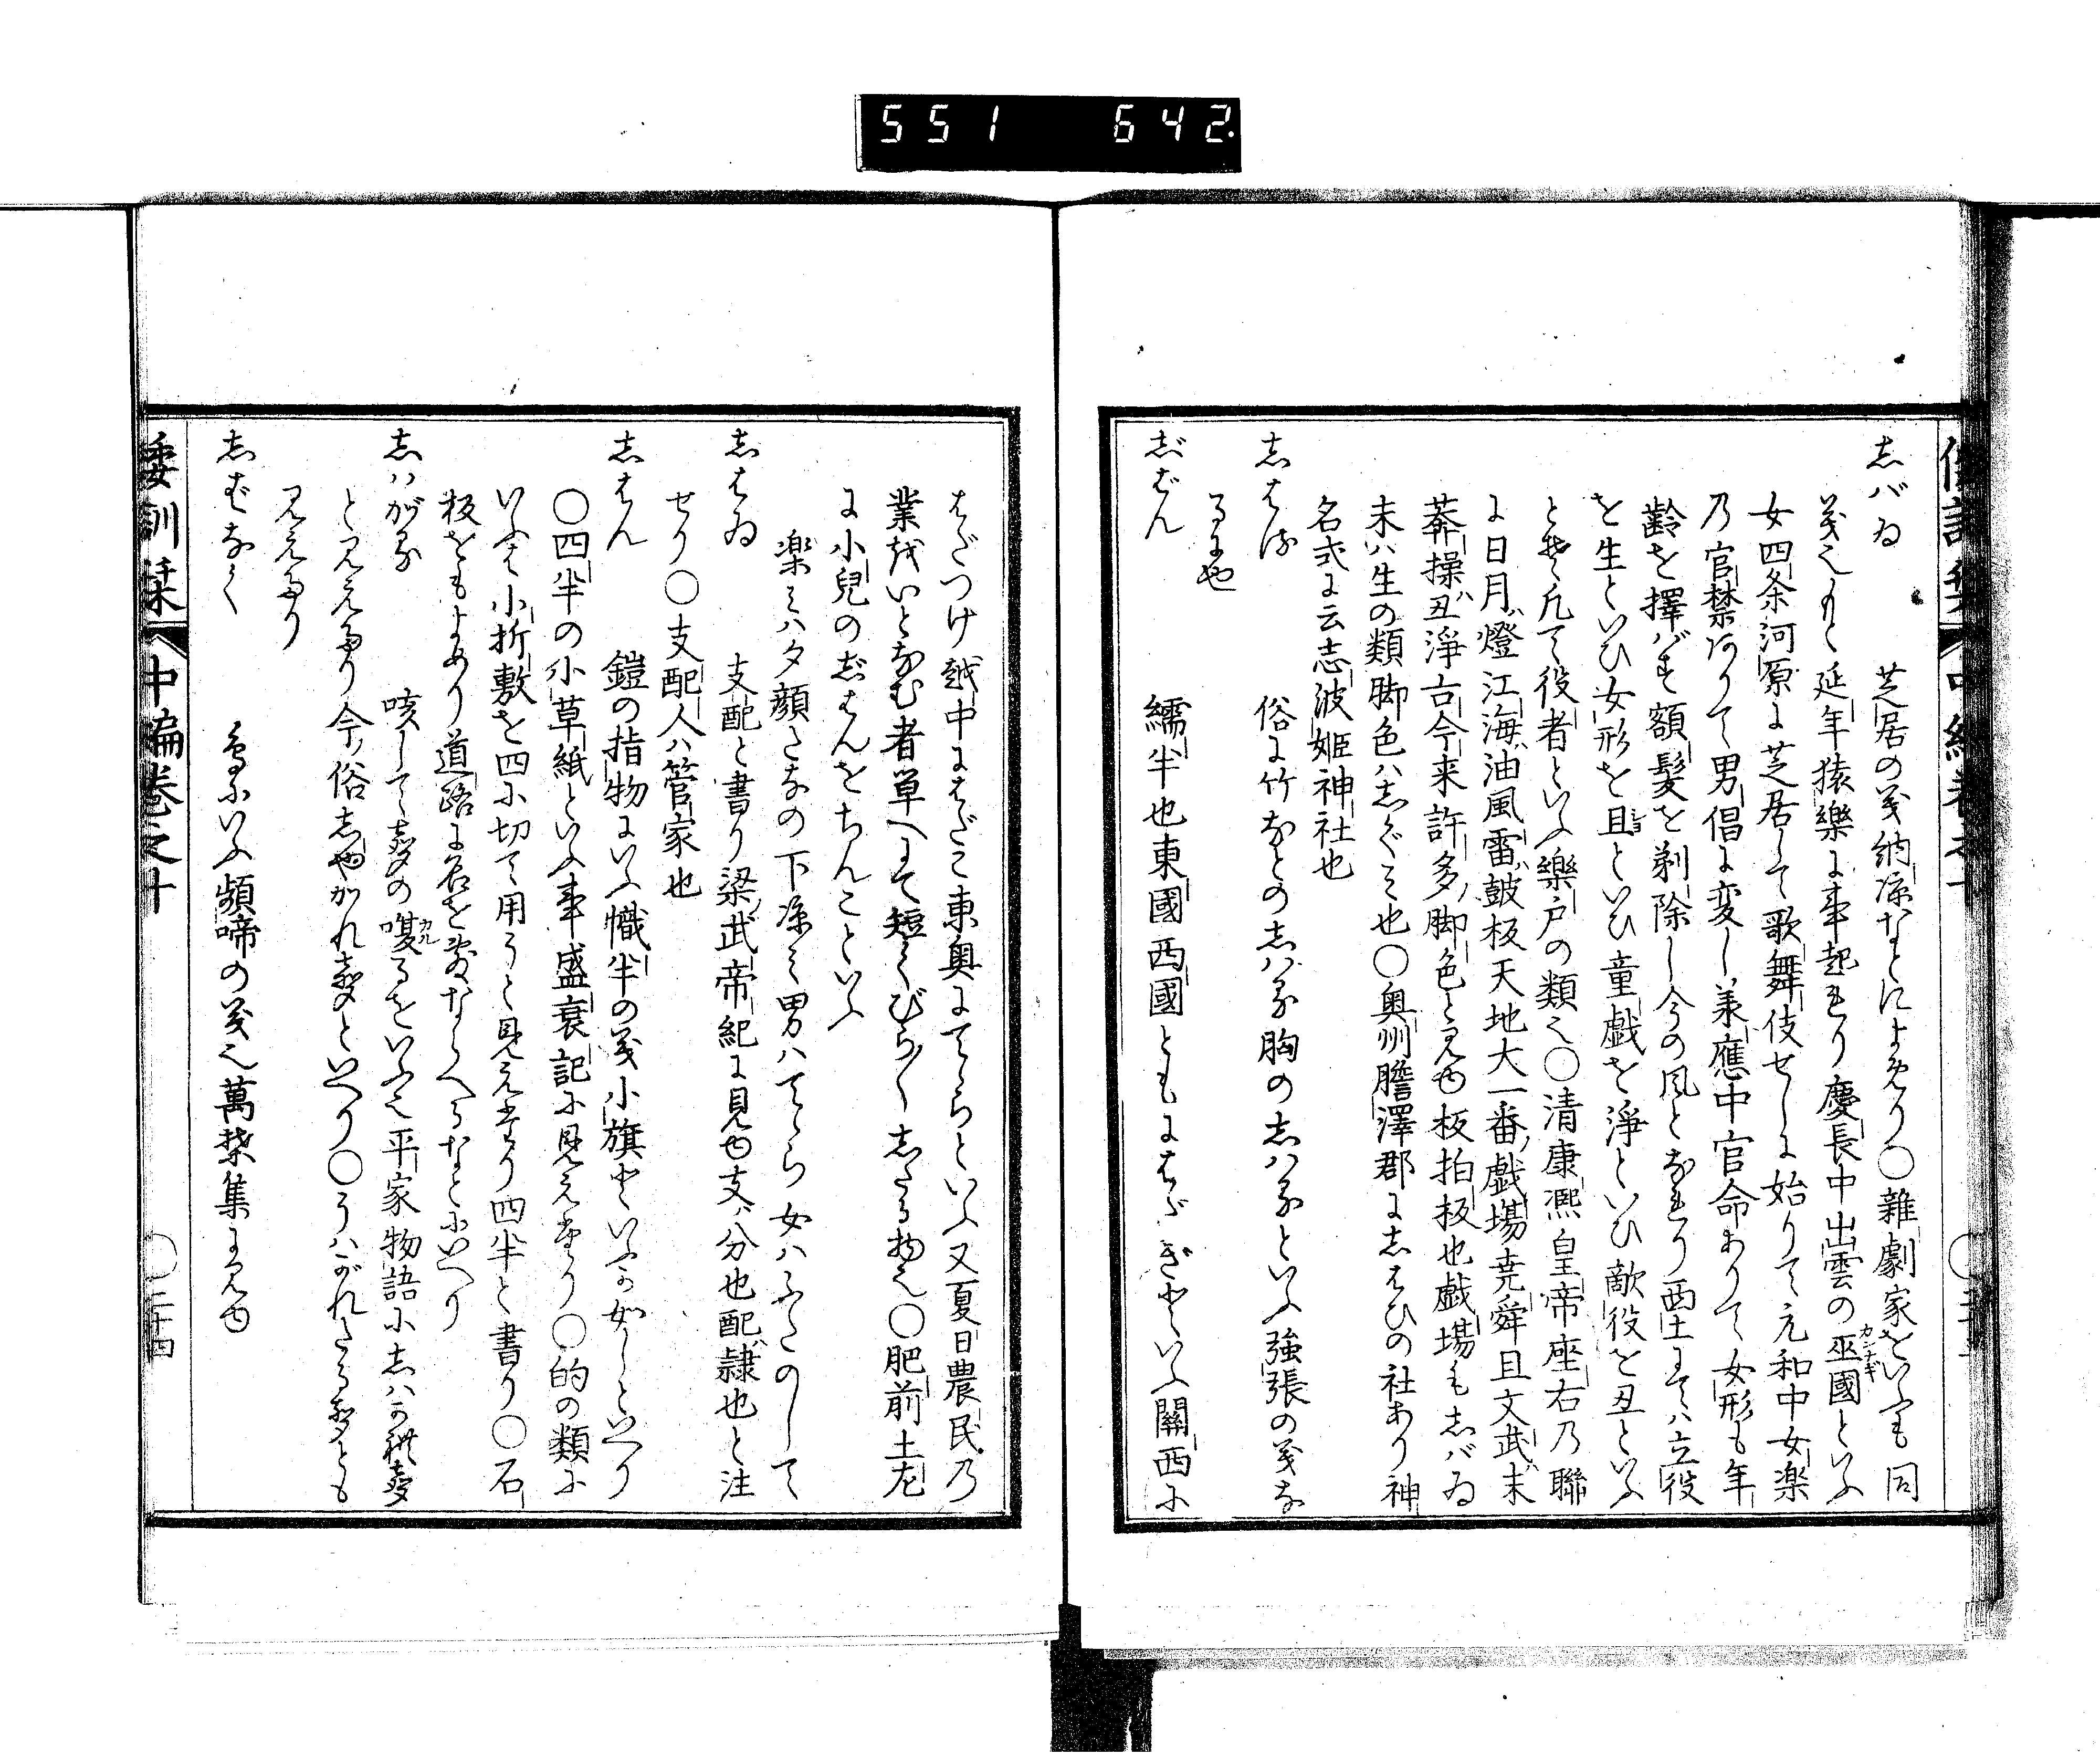 551 642.
志バゐ 芝居の義納凉などによめり〇雜劇家をいふも同
義也もと延年猿樂に事起れり慶長中出雲の巫國といふ
カンナギ
女四条河原に芝居して歌舞伎せしに始りて元和中女楽
乃官禁ありて男倡に変し羕應中官命ありて女形も年
齡を擇バず額髪を剃除し今の風となれり西土にてハ立役
を生といひ女形を且といひ童戯を淨といひ敵役を丑といふ
ショ
とぞ凡て役者といふ樂戸の類也〇清康凞皇帝座右乃聯
に日月ハ燈江海ハ油風雷ハ皷板天地大一番ノ戯塲尭舜ハ且文武ハ末
莾操ハ丑淨古今来許多ノ脚色と見ゆ板拍板也戯塲も志バゐ
末ハ生の類脚色ハ志ぐミ也〇奥州膽澤郡に志はひの社あり神
名式に云志波姫神社也
志はる 俗に竹などの志ハる胸の志ハるといふ強張の義な
るにや
志ばん 繻半也東國西國ともにはゞぎといふ關西に
はだつけ越中にはだこ東奥にてらといふ又夏日農民乃
業をいとなむ者草へにて短くびら〳〵志たる物也〇肥前土左
に小兒の志はんをちんこといふ
楽ミハ夕顔だなの下凉ミ男ハてゝら女ハふたのして
志はゐ 支配と書り梁ノ武帝紀に見ゆ支ハ分也配ハ隷也と注
せり〇支配人ハ管家也
志はん 鎧の指物にいふ幟半の義小旗といふが如しといへり
〇四半の小草紙といふ事盛衰記に見えたり〇的の類に
いふは小折敷を四に切て用うと見えたり四半と書り〇石
板をもよめり道路に石を敷ならへるなどにいへり
志ハがる 咳して聲の嗄るをいふ也平家物語に志ハがれ聲
カル
と見えたり今ノ俗志やがれ聲といへり〇うハがれたる聲とも
見えたり
志ばなく 鳥にいふ頻啼の義也萬葉集に見ゆ
倭訓栞 中編巻之十 〇二十四